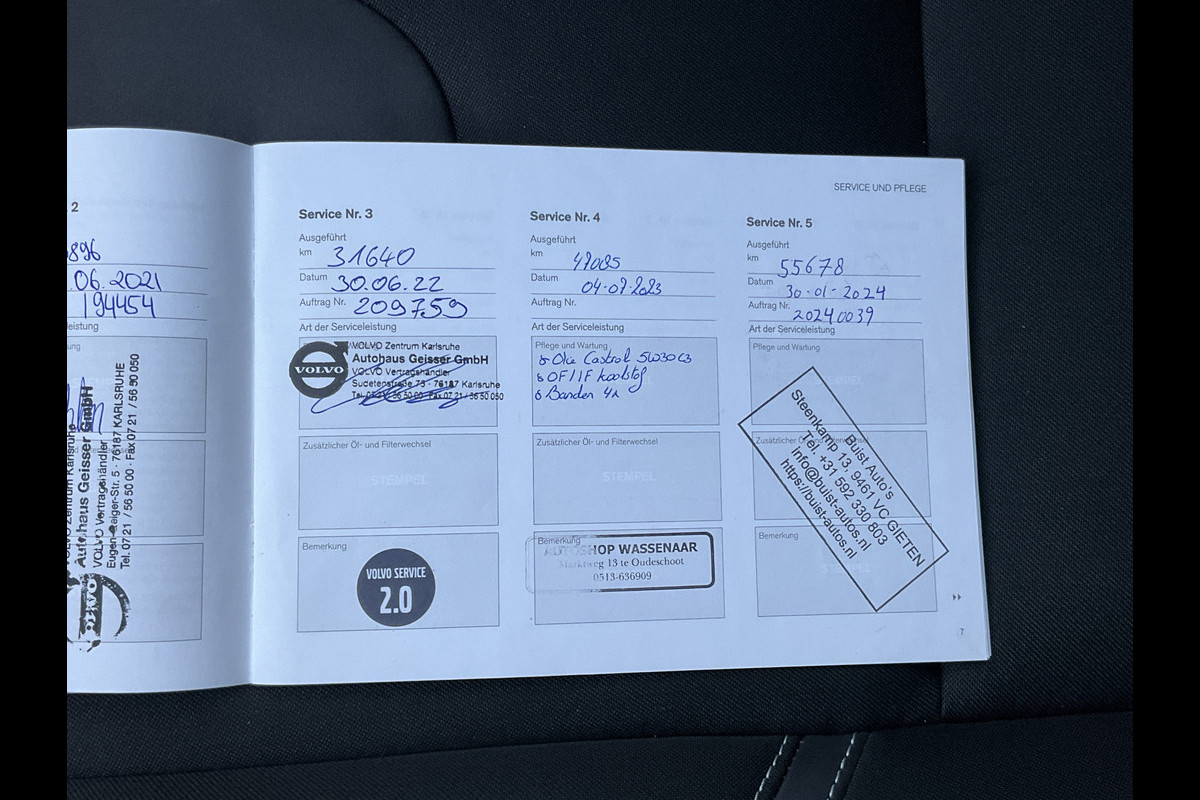 SERVICE UND PFLEGE
2
896
.06.2021
194454
eistung
ung
VOLVO Zentrum Karlsruhe
Autohaus Geisser GmbH
VOLVO Vertragshändler
Eugen-Geiger-Str. 5 · 76187 KARLSRUHE
Tel. 07 21 / 56 50 00 · Fax 07 21 / 56 50 050
VOLVO
Service Nr. 3
Ausgeführt
km 31640
Datum 30.06.22
Auftrag Nr. 209759
Art der Serviceleistung
VOLVO
VOLVO Zentrum Karlsruhe
Autohaus Geisser GmbH
VOLVO Vertragshändler
Sudetenstraße 73 · 76187 Karlsruhe
Tel. 07 21 / 56 50 00 · Fax 07 21 / 56 50 050
Zusätzlicher Öl- und Filterwechsel
STEMPEL
Bemerkung
VOLVO SERVICE
2.0
Service Nr. 4
Ausgeführt
km
Datum 04-07-2023
Auftrag Nr.
Art der Serviceleistung
Pflege und Wartung
Olie Castrol 5W30 C3
OF/IF koolstof
Banden 4x
Zusätzlicher Öl- und Filterwechsel
STEMPEL
Bemerkung
AUTOSHOP WASSENAAR
Marktweg 13 te Oudeschoot
0513-636909
Service Nr. 5
Ausgeführt
km 55678
Datum 30-01-2024
Auftrag Nr. 20240039
Art der Serviceleistung
Pflege und Wartung
STEMPEL
Zusätzlicher Öl- und Filterwechsel
Buist Auto's
Steenkamp 13, 9461 VC GIETEN
Tel. +31 592 330 803
info@buist-autos.nl
https://buist-autos.nl
Bemerkung
STEMPEL
7